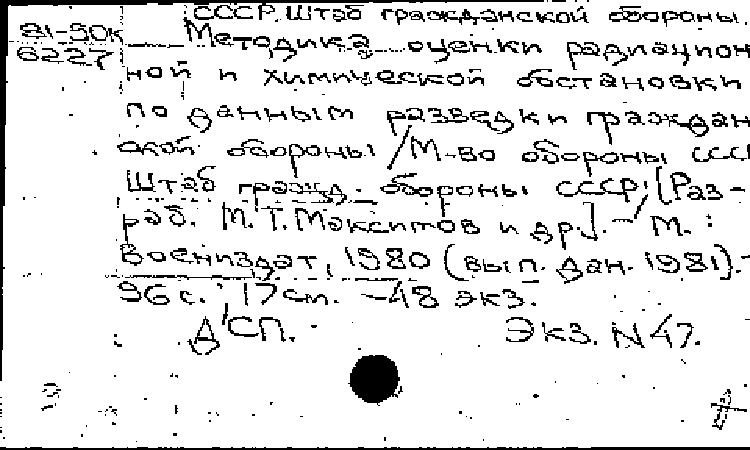 СССР. Штаб гражданской обороны.
81-50к
6227
Методика оценки радиацион
ной и химической обстановки
по данным разведки граждан
ской обороны / М-во обороны ссс
Штаб гражд. обороны СССР; [Раз-
раб. М. Т. Максимов и др]. - М. :
Воениздат, 1980 (вып. дан. 1981). -
96 с. ; 17 см. - 48 экз.
ДСП. Экз. N 47.